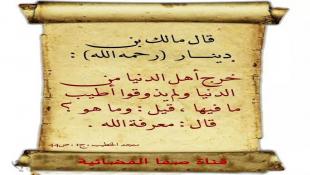 قال مالك بن
دينار (رحمه الله) :
خرج أهل الدنيا من
الدنيا ولم يذوقوا أطيب
ما فيها ، قيل : وما هو ؟
قال : معرفة الله .
قناة صفا الفضائية